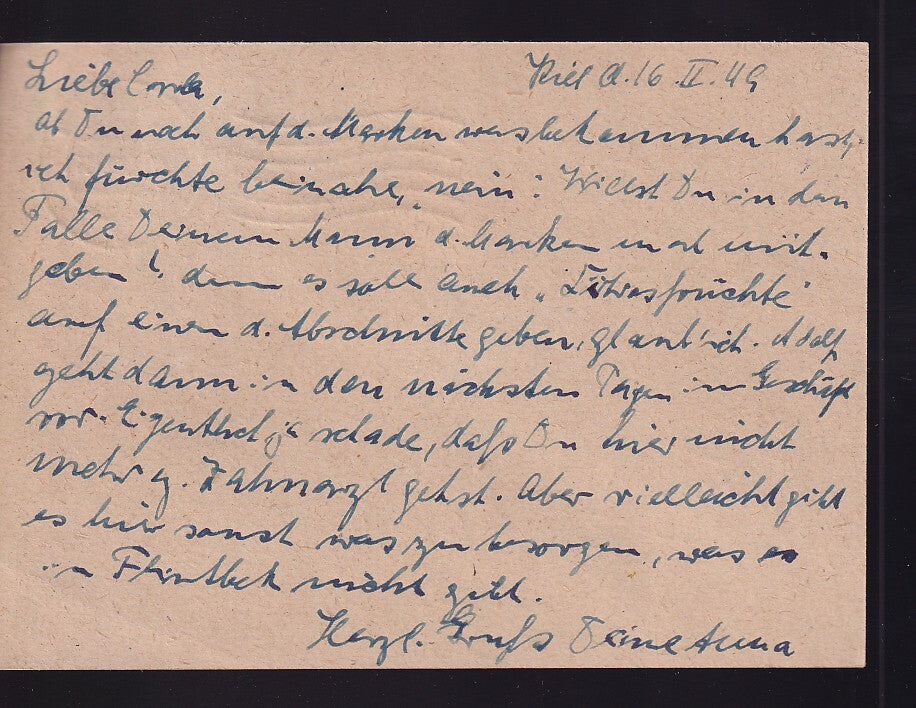 Kiel d. 16. II. 49
Liebe
ob Du noch auf d. Marken was bekommen hast,
ich fürchte beinahe, "nein". Willst Du in dem
Falle Deinem Mann d. Marken mal mit-
geben?, denn es soll auch „Südfrüchte"
auf einen d. Abschnitte geben, glaub' ich. Adolf
geht dann in den nächsten Tagen im Geschäft
vor. Eigentlich ja schade, daß Du hier nicht
mehr z. Zahnarzt gehst. Aber vielleicht gibt
es hier sonst was zu besorgen, was es
in Flintbek nicht gibt.
Herzl. Gruß Deine Anna